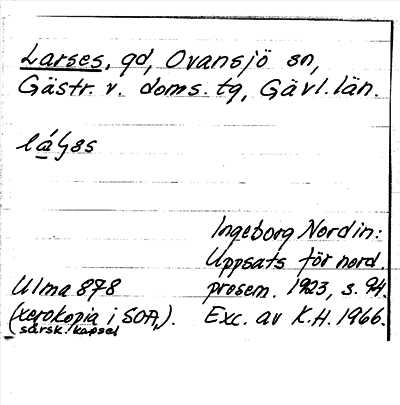 Larses, gd, Ovansjö sn,
Gästr. v. doms. tg, Gävl. län.
Ingeborg Nordin:
Uppsats för nord.
Ulma 878 prosem. 1923, s. 94.
(xerokopia i SOA,). Exc. av K.H. 1966.
särsk. kapsel